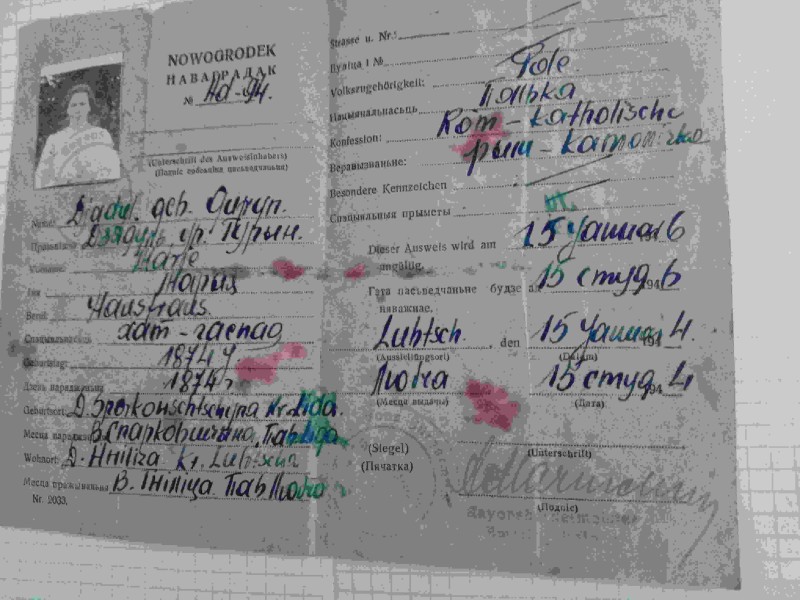 NOWOGRODEK
НАВАГРАДАК
№ Ad-94.
(Unterschrift des Ausweisinhabers)
(Подпіс уладальніка пасьведчаньня)
Name: Diadul, geb. Ouryn.
Дзядуль, ур. Гурын.
Marie
Імя Марыя
Beruf: Hausfrau
хат - гаспад
Geburtstag: 1874 J.
Дзень нараджэньня 1874 г.
Geburtsort: D. Sporkouschtschyna Kr. Lida.
Месца нараджэньня В. Спаркоўшчына, Пав Ліда.
Wohnort: D. Hniliza Kr. Lubtscha
Месца пражываньня В. Гніліца Пав Любча
Nr. 2033.
Strasse u. Nr.:
Вуліца і №
Volkszugehörigkeit: Pole
Нацыянальнасьць Полька
Konfession: Röm - katholische
Веравызнаньне: рым - каталіцкае
Besondere Kennzeichen
Спэцыяльныя прыметы
Dieser Ausweis wird am 15 Januar 1946
ungültig.
Гэта пасьведчаньне будзе 15 студ 1946
няважнае.
Lubtsch. , den 15 Januar 1944.
(Ausstellungsort) (Datum)
Любча 15 студ 1944
(Месца выдачы) (Дата)
(Siegel) (Unterschrift)
(Пячатка) (Подпіс)